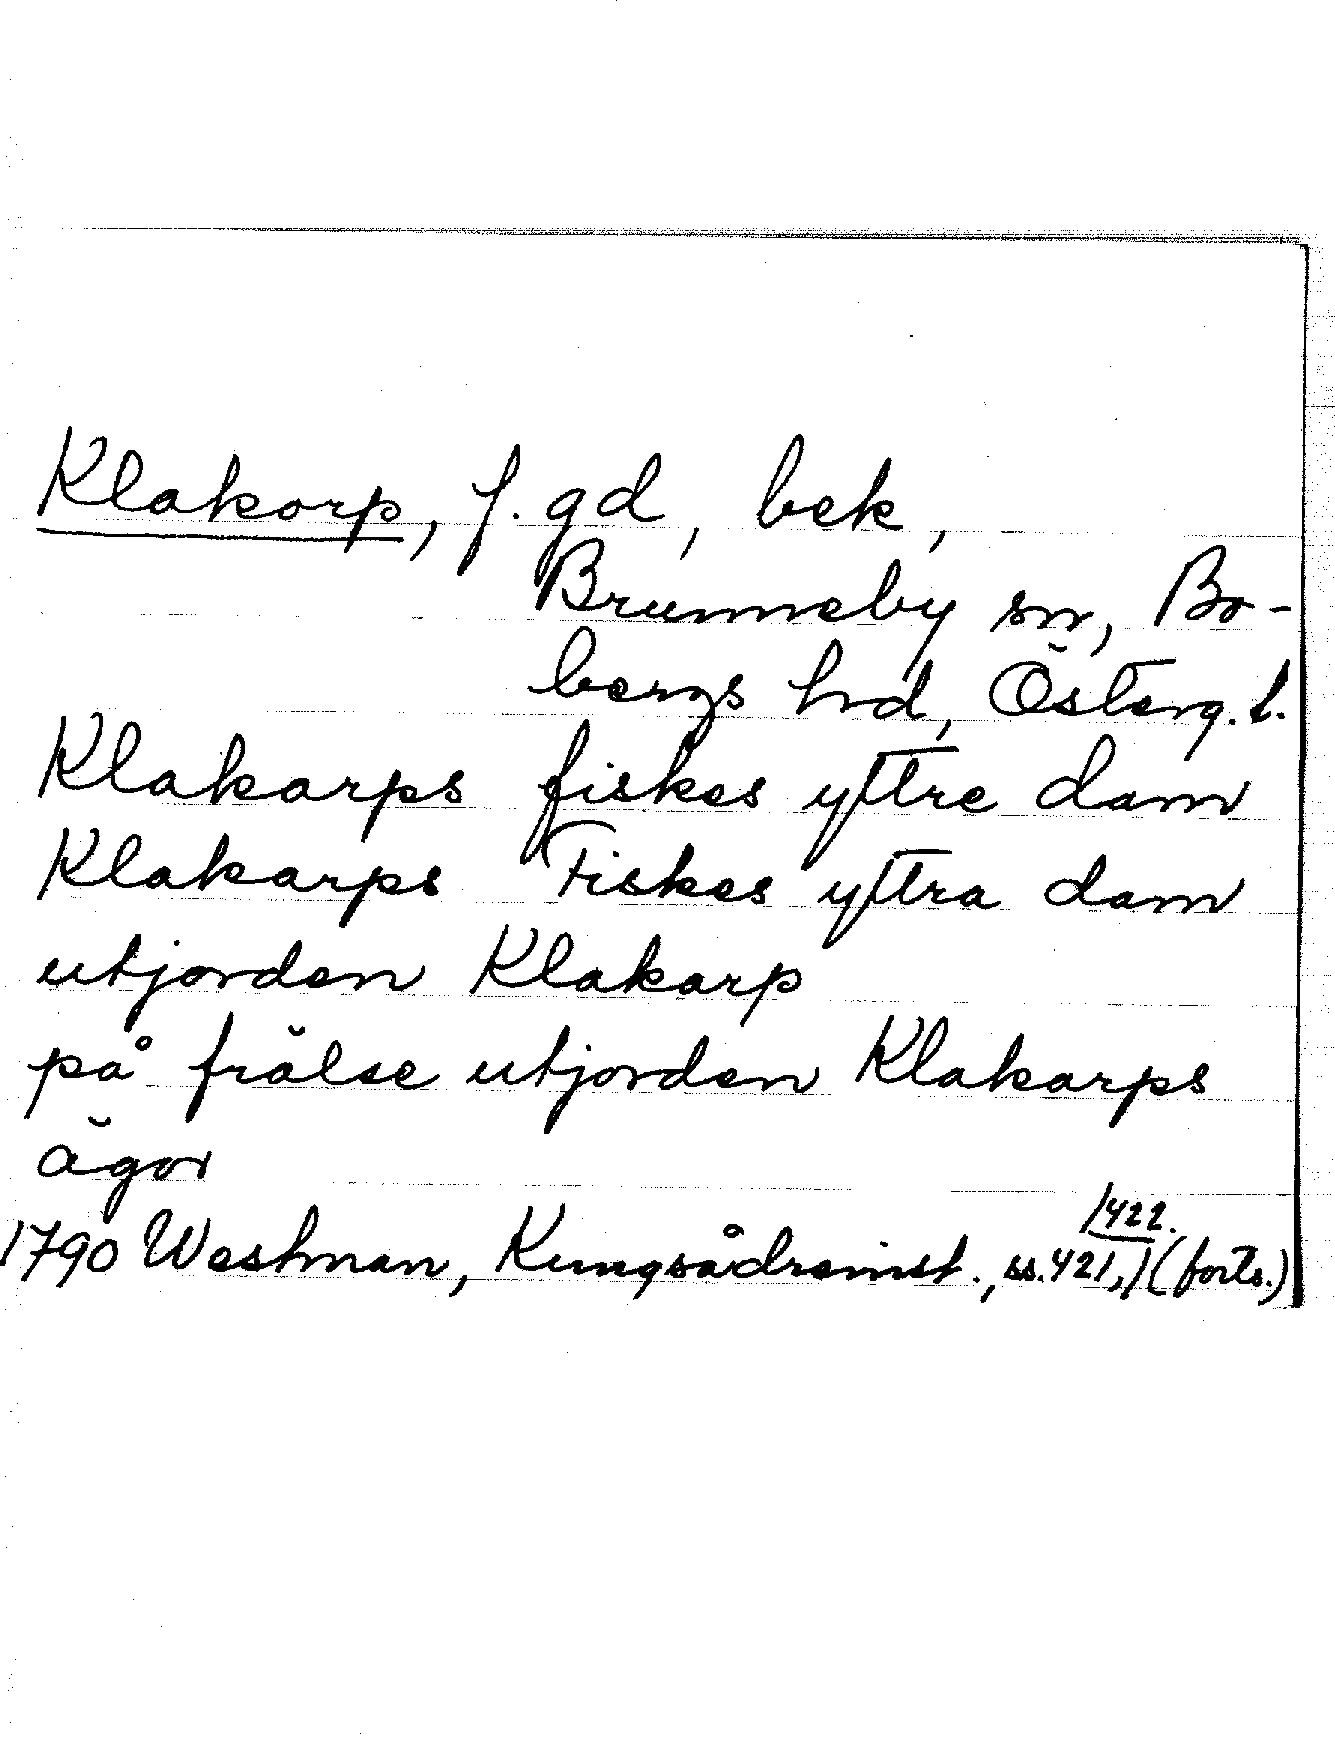 Klakorp, f. gd, bek,
Brunneby sn, Bo-
bergs hd, Österg. l.
Klakarps fiskes yttre dam
Klakarps Fiskes yttra dam
utjorden Klakarp
på frälse utjorden Klakarps
ägor
1790 Westman, Kungsådreinst., ss. 421, 422. (forts.)